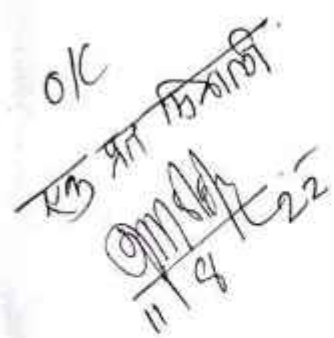 O/C
एक प्रत मिळाली
11/8/22